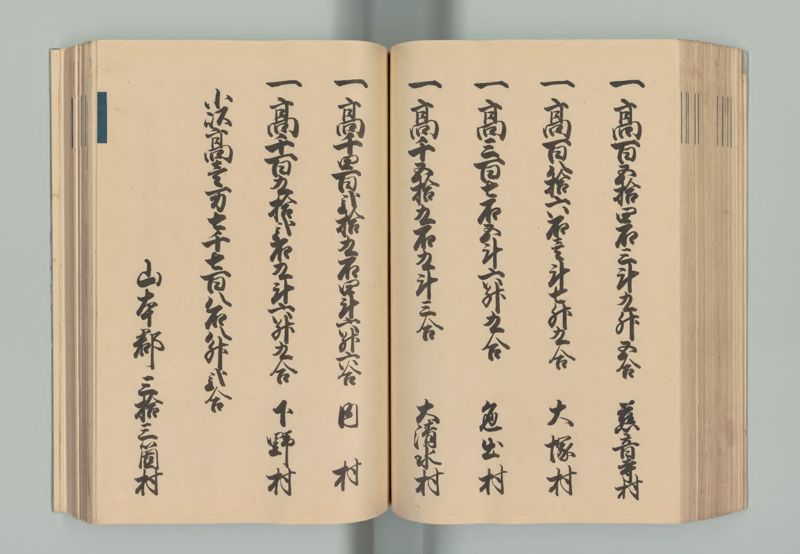 一高百五拾四石三斗九升五合 慈音寺村
一高百八拾六石壱斗七升九合 大塚村
一高三百七石五斗六升九合 色出村
一高千五拾九石九斗三合 大清水村
一高千四百弐拾九石四斗六升六合 円村
一高千百九拾弐石九斗六升九合 下野村
小以高壱万七千七百八石八升弐合
山本郡 三拾三箇村